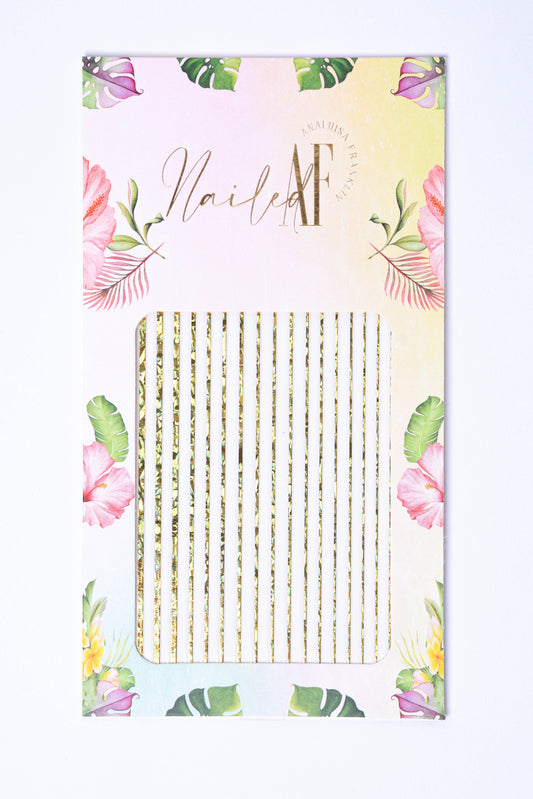 Nailed AF
ANALUISA FRANKLIN